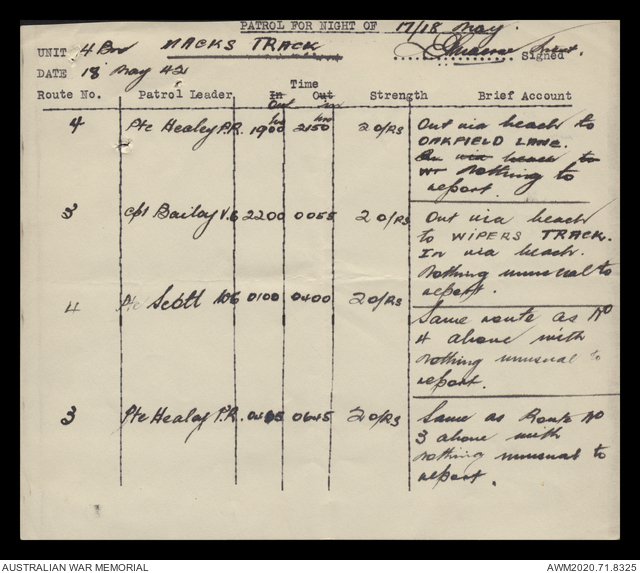 PATROL FOR NIGHT OF 17/18 May.
UNIT 4 Bn MACKS TRACK Signed
DATE 18 May 42
Route No. Patrol Leader Time In Out Strength Brief Account
Out In
4 Pte Healey P.R. 1900 hrs 2150 hrs 2 O/Rs Out via beach to
OAKFIELD LANE.
In via beach to
nothing to
report.
3 Cpl Bailey V.G 2200 0055 2 O/Rs Out via beach
to WIPERS TRACK.
In via beach.
Nothing unusual to
report.
4 Pte Scott WG 0100 0400 2 O/Rs Same route as No
4 above with
nothing unusual to
report.
3 Pte Healey P.R. 0445 0645 2 O/Rs Same as Route No
3 above with
nothing unusual to
report.
AUSTRALIAN WAR MEMORIAL AWM2020.71.8325